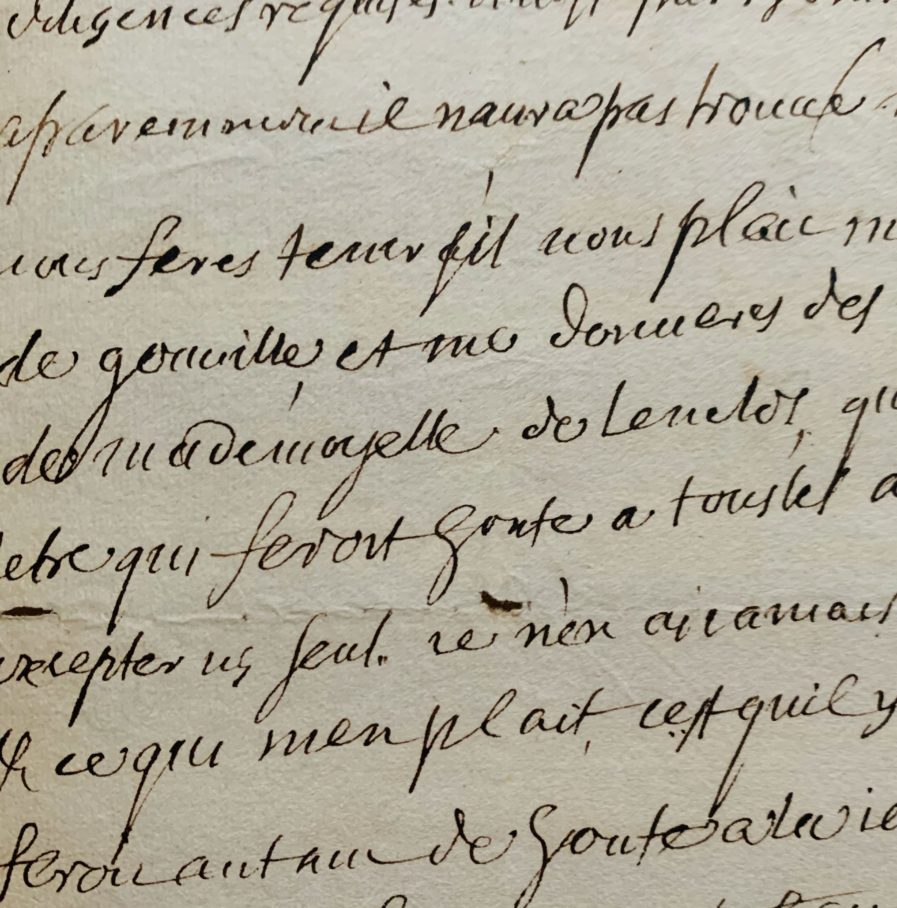 diligences requises
aparemment il naura pas trouué
uous feres tenir sil uous plait
de gouuille et me donneres des
de mademoyselle de Lenclos, qu
letre qui feroit honte a tous les a
excepter un seul. ie nen ai iamais
& ce qui men plait, cest quil y
feroit autant de honte a la uie